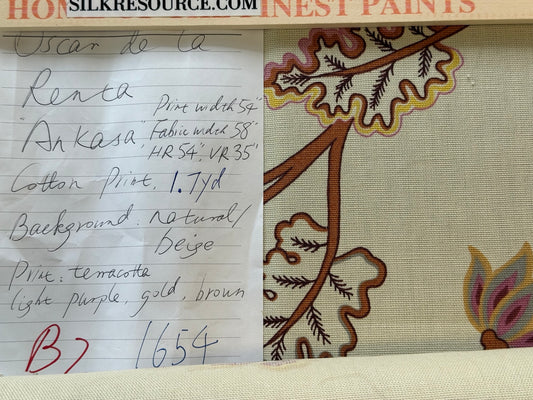 HOM SILKRESOURCE.COM INEST PAINTS
Oscar de la
Renta
"Ankasa"
Print width 54"
Fabric width 58"
HR 54", VR 35"
Cotton Print, 1.7yd
Background: natural/
beige
Print: terracotta
light purple, gold, brown
B7 1654